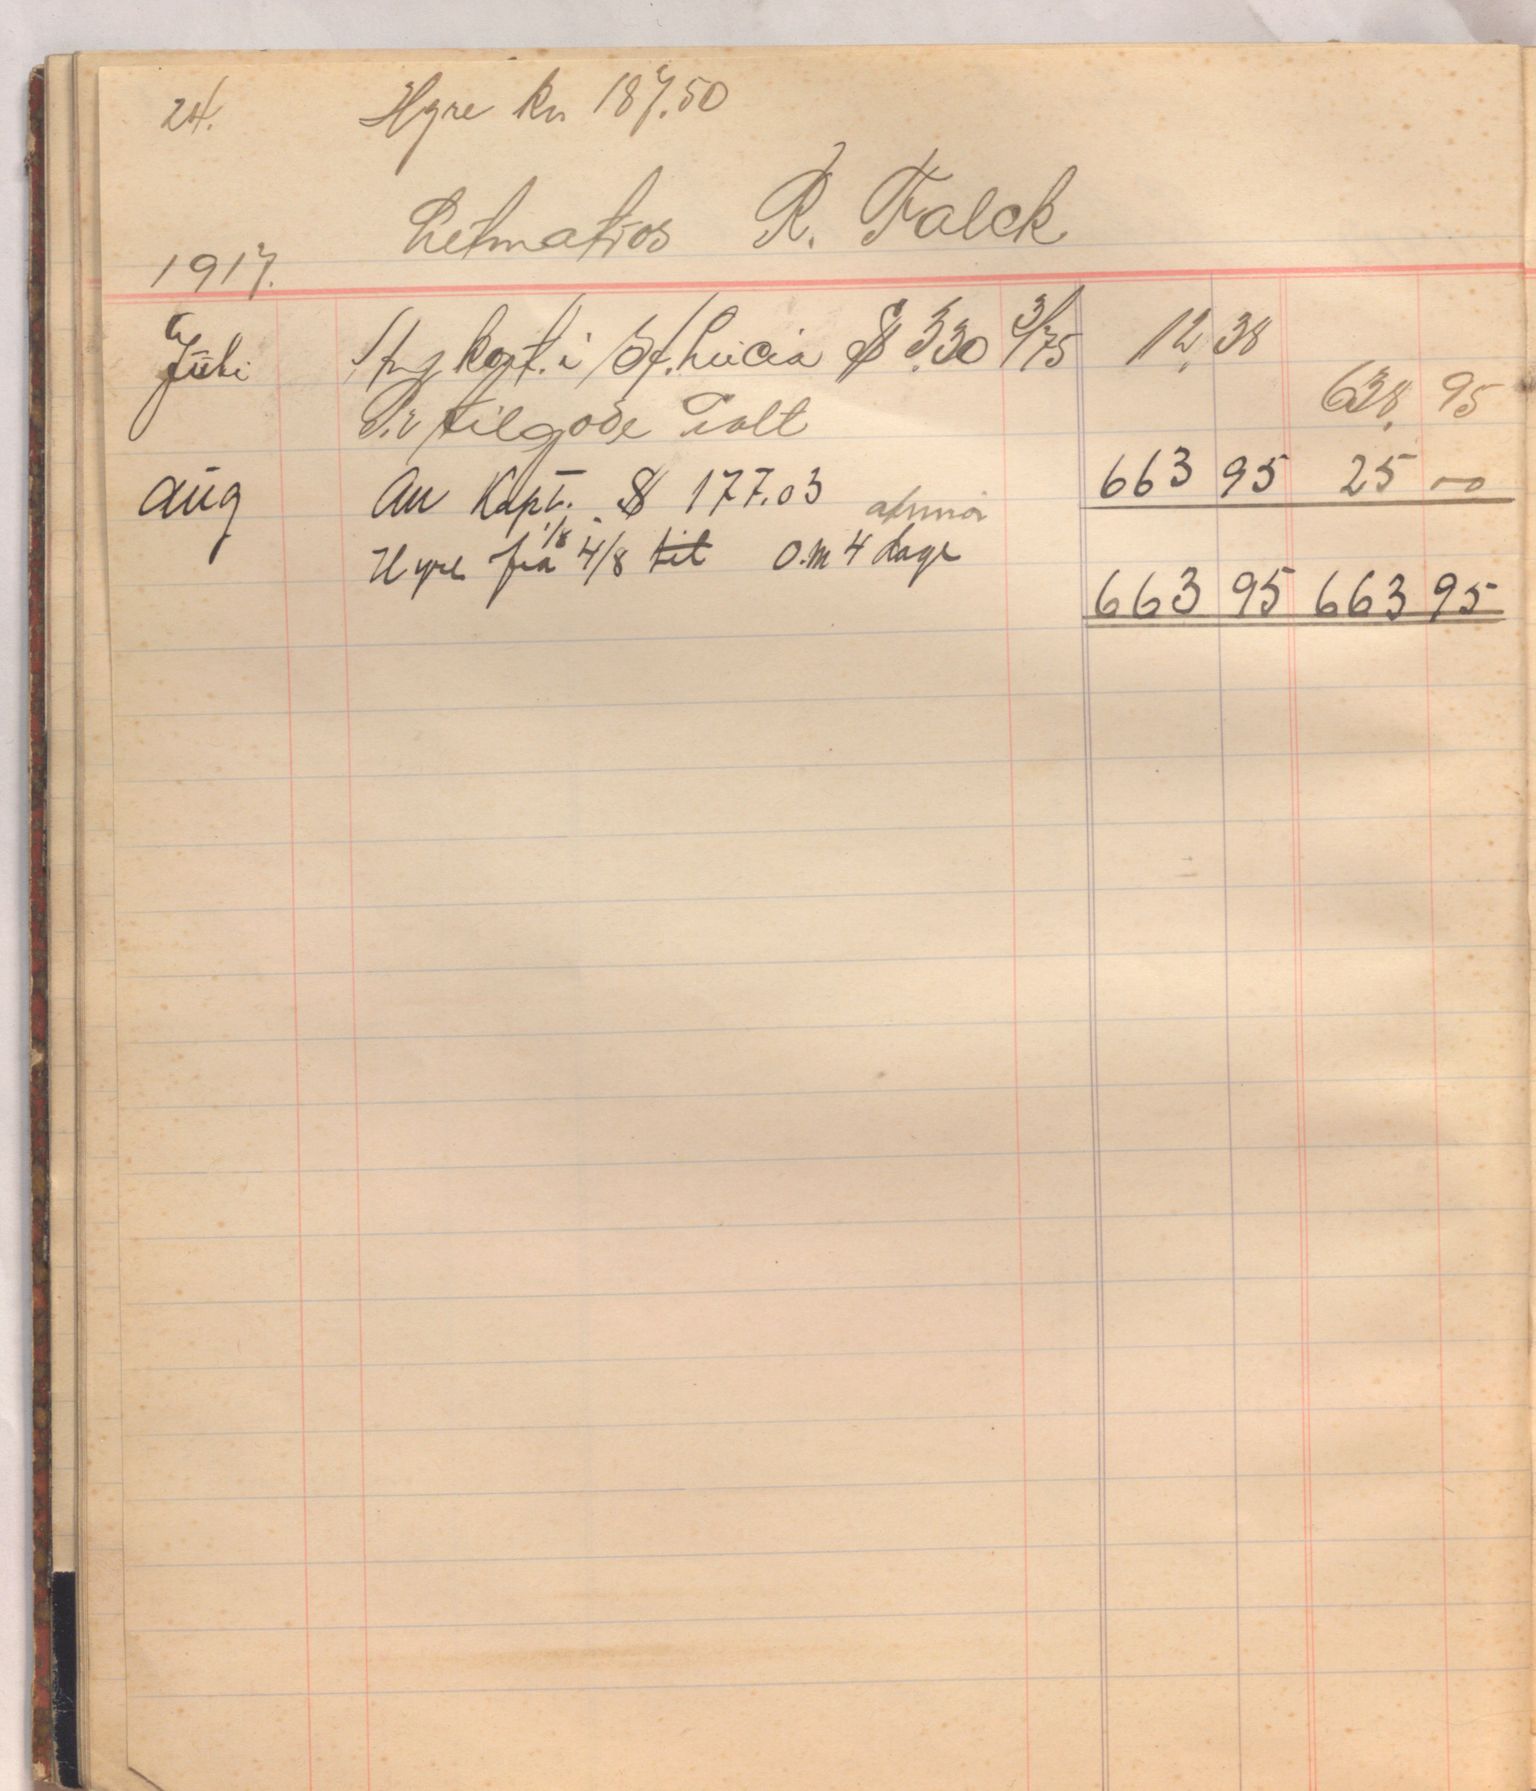 24. Hyre kr 187.50
Letmatros R. Falck
1917.
Juli kost. i St. Lucia $ 3.30 3/75 12,38
Pr tilgode Talt 638,95
Aug An Kapt. $ 177.03 663 95 25 00
Hyre fra 1/8 - 4/8 til o.m 4 dage
663 95 663 95